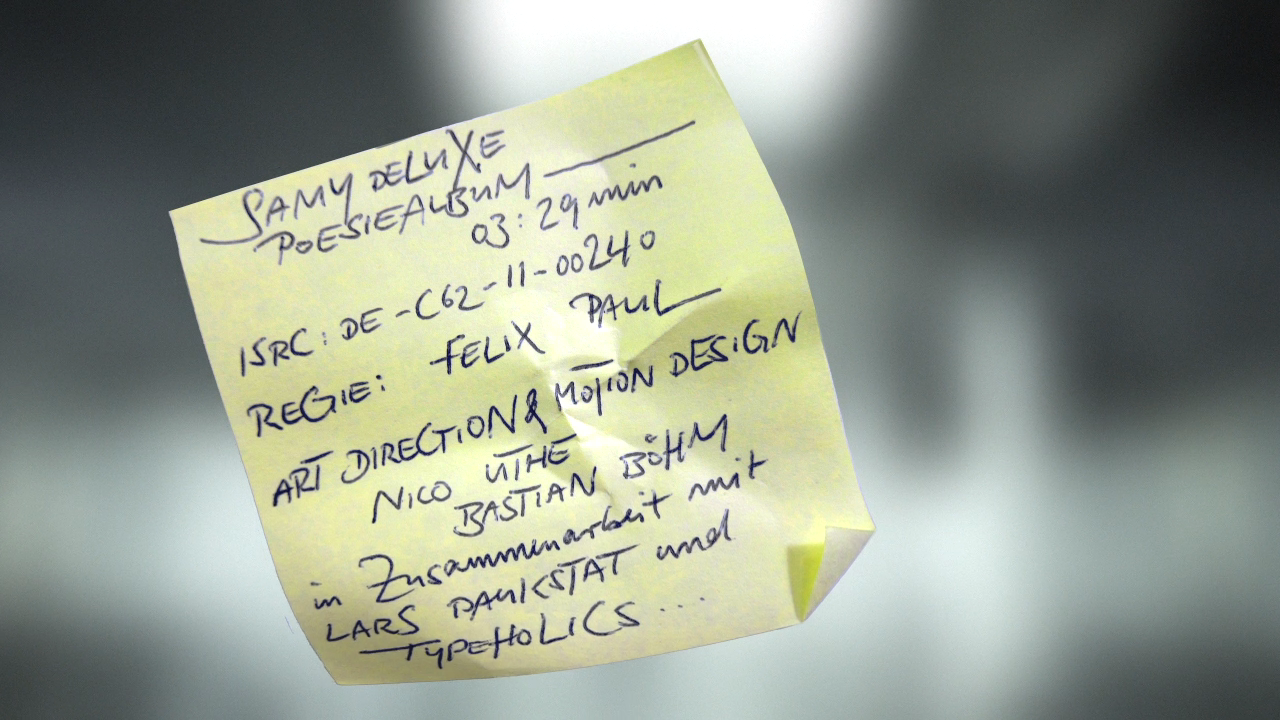 SAMY DELUXE
POESIEALBUM
03:29 min
ISRC: DE-C62-11-00240
REGIE: FELIX PAUL
ART DIRECTION & MOTION DESIGN
NICO UTHE
BASTIAN BÖHM
in Zusammenarbeit mit
LARS PAUKSTAT und
TYPEHOLICS...